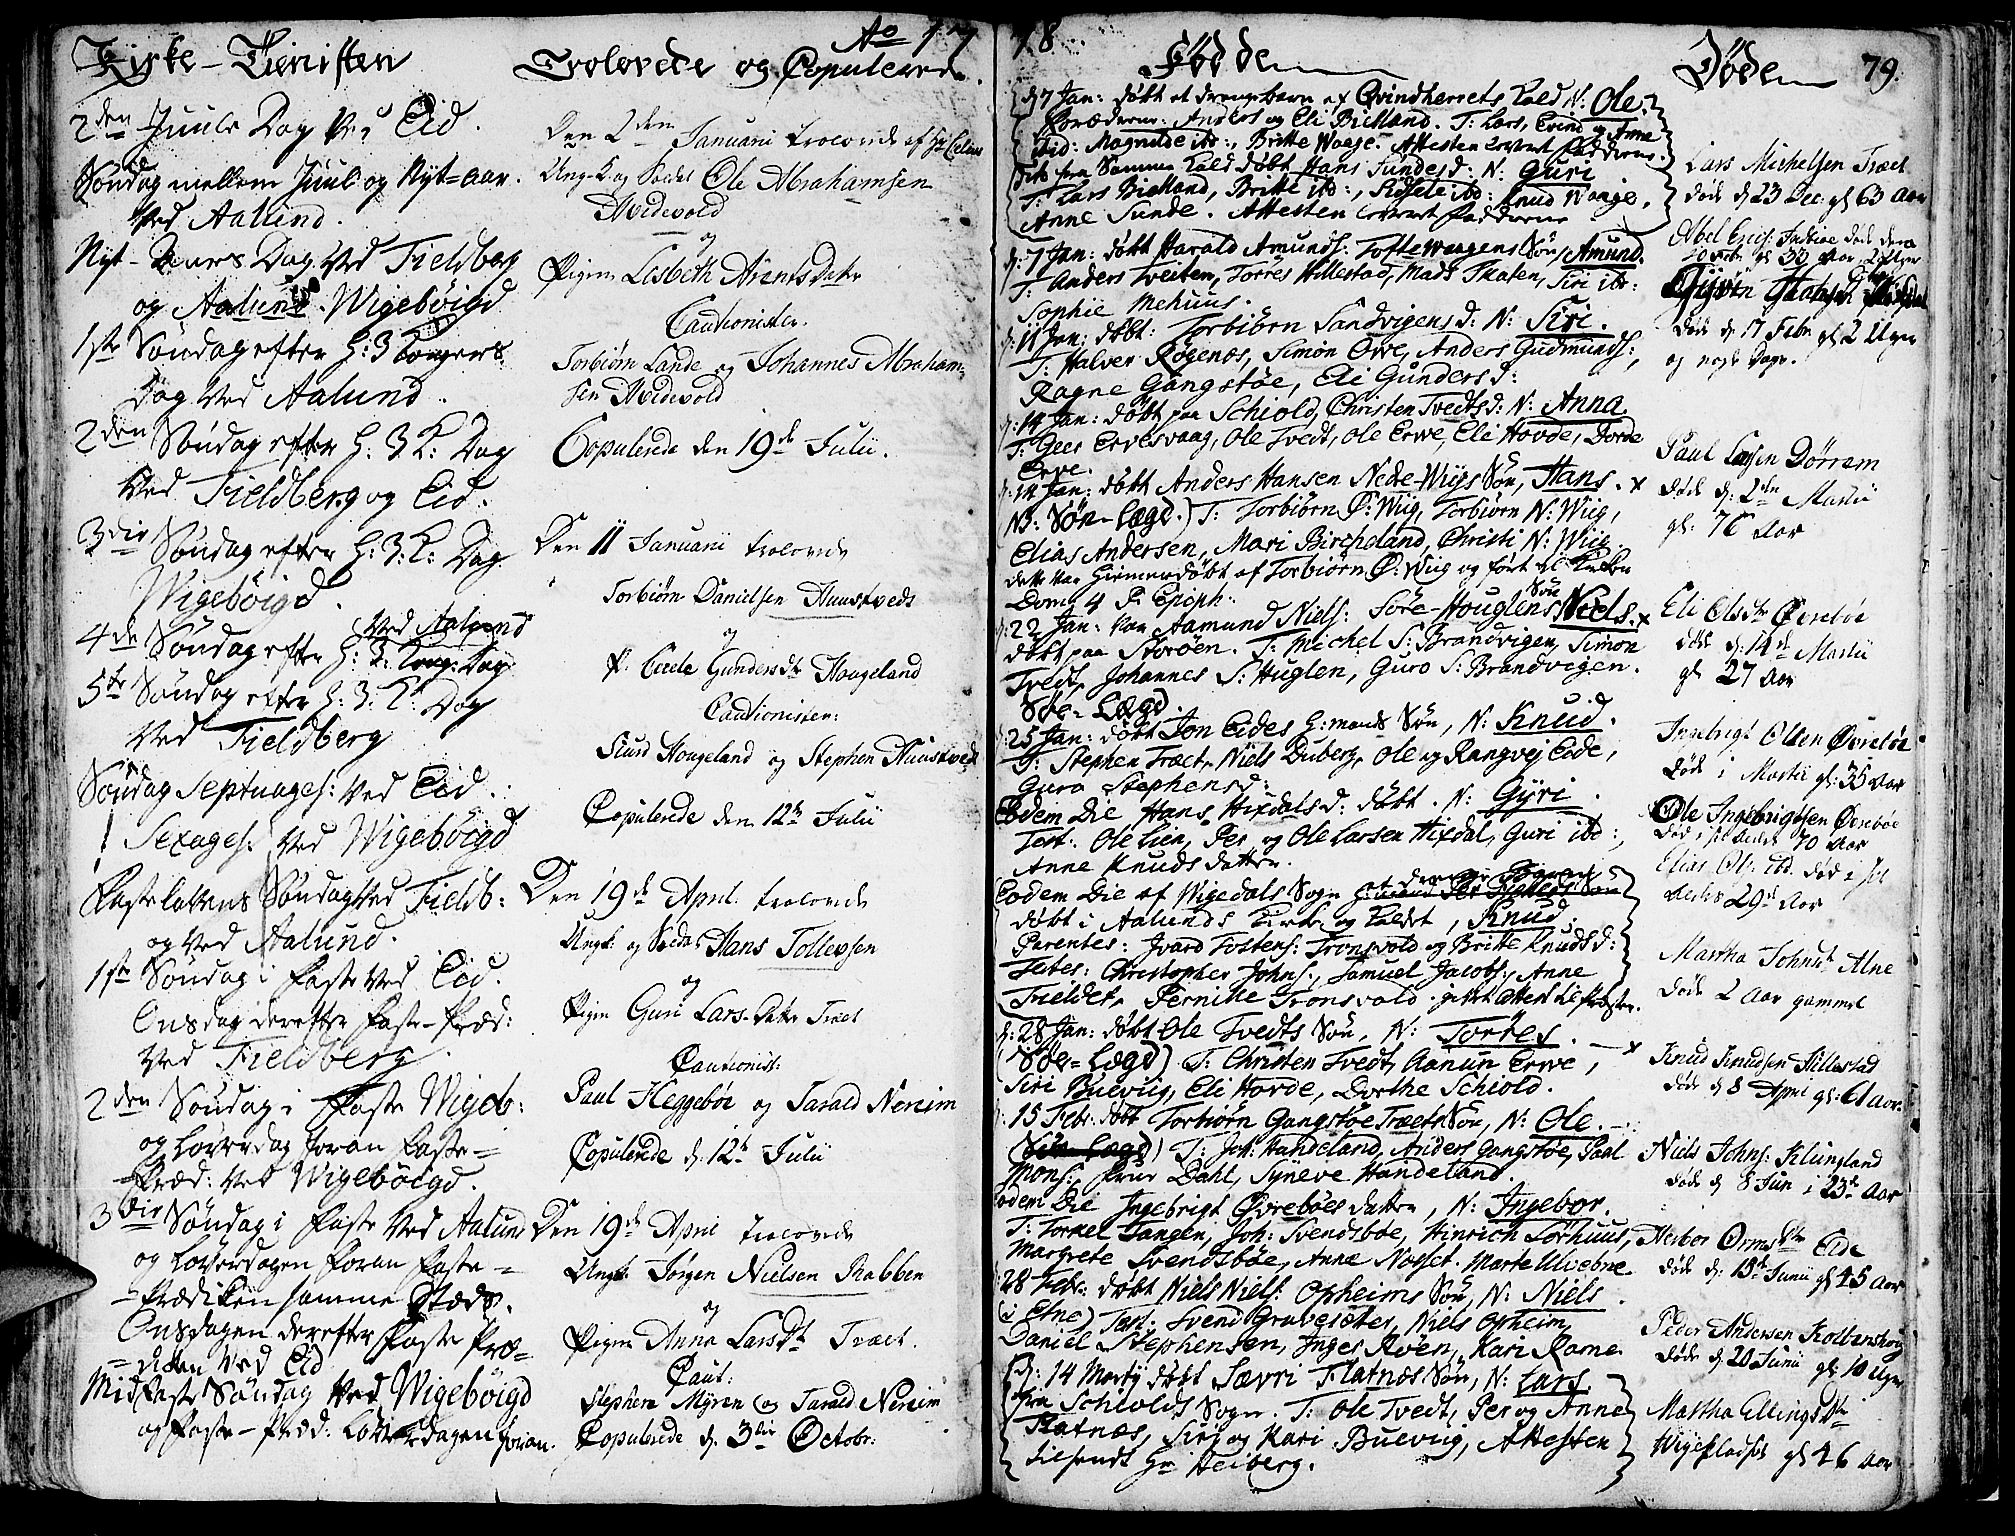 Ao 1778
Kirke-Tienisten
2den Juule Dag Ved Eid.
Søndag mellem Juul og Nyt-aar.
Ved Aalund.
Nyt-Aars Dag Ved Fieldberg
og Aalund. Wigebøigd
1ste Søndag efter H: 3 Kongers
Dag Ved Aalund.
2den Søndag efter H: 3 K: Dag
Ved Fieldberg og Eid.
3die Søndag efter H: 3: K: Dag
Wigebøigd.
Ved Aalund
4de Søndag efter H: 3: Kong: Dag
5te Søndag efter H: 3: K: Dag
Ved Fieldberg
Søndag Septuages: Ved Eid.
Sexages: Ved Wigebøigd
Fastelavens Søndag Ved Fieldb:
og Ved Aalund.
1ste Søndag i Faste Ved Eid.
Onsdag derefter Faste-Præd:
Ved Fieldberg.
2den Søndag i Faste Wigeb:
og Løverdag foran Faste-
-Præd: Ved Wigebøigd.
3die Søndag i Faste Ved Aalund
og Løverdagen foran Faste-
-Prædiken samme Stæds.
Onsdagen derefter Faste Præ-
-diken Ved Eid
Midfaste Søndag Ved Wigebøigd
og Faste-Præd: Løverdagen foran.
Trolovede og Copulerede.
Den 2den Januarii trolovede af Hr
Ungk: og Ole Abrahamsen
Medevold
og
Pigen Lisbeth Arents Datter
Cautionister.
Torbiørn Lande og Johannes Abraham-
sen Medevold
Copulerede den 19de Julii.
Den 11 Januarii trolovede
Torbiørn Danielsen Huustveds
og
P. Cecele Gundersdtr Hougeland
Cautionister:
Siurd Hougeland og Stephen Huustvedt
Copulerede den 12te Julii
Den 19de April trolovede
Ungk: og Hans Tollevsen
og
Pigen Guri Lars Datter Træet
Cautionist:
Paul Heggebøe og Tarald Nereim
Copulerede d. 12te Julii
Den 19de April trolovede
Ungk: Jørgen Nielsen Rabben
og
Pigen Anna Larsdtr Træet.
Caut:
Stephen Myren og Tarald Nereim
Copulerede d. 3die Octobr:
Fødde
d. 7 Jan: døbt et drengebarn af Qvindherrets Kald N: Ole.
Forældrene: Anders og Eli Bielland. T: Lars, Erind og Anne
ibid: Magnilde ibd:, Britte Waage. Attesten levert Fadderne.
Dito fra Samme Kald døbt Hans Sundes d: N: Guri
T: Lars Bielland, Britte ibd:, ibd: Knud Waage,
Anne Sunde. Attesten levert Fadderne
d: 7 Jan: døbt Harald Amunds: Toftewaagens Søn, Amund.
T: Anders Tveiten, Torres Hillestad, Mads Skaten, Siri ibd:
Sophie Mehuus.
d: 11 Jan: døbt: Torbiørn Sandvigens d: N: Siri.
T: Halver Røgenæs, Simon Erve, Anders Gudmunds:,
Ragne Gangstøe, Eli Gunders d:
d: 14 Jan: døbt paa Schiold, Christen Tvedts d: N: Anna
T: Geer Ervesvaag, Ole Tvedt, Ole Erve, Eli Hovde, Dorde
Erve.
d: 14 Jan: døbt Anders Hansen Nedre-Wiigs Søn, Hans. x
N: Søn-Lægd.) T: Torbiørn Ø: Wiig, Torbiørn N: Wiig,
Elias Andersen, Mari Bircheland, Christi N: Wiig.
dette var hiemmedøbt af Torbiørn Ø: Wiig og ført til Kirken
Dom: 4 P. Epiph:
d: 22 Jan: var Aamund Niels: Søre-Houglens Søn Niels. x
døbt paa Storøen. T: Michel S: Brandvigen, Simon
Tvedt, Johannes S: Huglen, Guro S: Brandvigen.
Søe-Lægd.
d: 25 Jan: døbt Jon Eides H:mands Søn, N: Knud.
T: Stephen Træet, Niels Duberg, Ole og Rangvej Eide,
Guro Stephens d:
Eodem Die Hans Hixdals d: døbt. N: Gyri.
Test: Ole Lien, Per og Ole Larsen Hixdal, Guri ibd:,
Anne Knuds datter.
Eodem Die af Wigedals Sogn
døbt i Aalunds Kirke og Kaldet, Knud.
Parentes: Ivard Tostens: Tronsvold og Britte Knuds d:
Testes: Christopher Johns:, Samuel Jacobs:, Anne
Fieldet, Pernille Tronsvold. givet attest til Præsten.
d: 28 Jan: døbt Ole Tvedts Søn, N: Torres.
(Søe-Lægd) T: Christen Tvedt, Aanun Erve, x
Siri Buevig, Eli Hovde, Dorthe Schiold.
d: 15 Febr: døbt Torbiørn Gangstøe Træets Søn, N: Ole.
T: Joh: Handeland, Anders Gangstøe, Paal
Mons:, Dahl, Syneve Handeland.
Eodem Die Ingebrigt Øvrebøes datter, N: Ingebor.
T: Torkel Tangen, Joh: Svendsbøe, Hinrich Sørhuus,
Margrete Svendsbøe, Anne Nosset. Marte Ulvebne
28 Febr: døbt Niels Niels: Opheims Søn, N: Niels.
(i Etne) Test: Svend Gravesæter, Niels Opheim,
Daniel Stephensen, Inger Røen, Kari Rame
d: 14 Martij døbt Sævri Flatnæs Søn, N: Lars
fra Schiolds Sogn. T: Ole Tvedt, Per og Anne
Flatnæs, Siri og Kari Buevig, Attesten
tilsendt Hr Heiberg.
Døde
79.
Lars Michelsen Træet
døde d 23 Dec: gl 63 Aar
Abel Erics: døde den
Febr: gl 30 Aar
døde d. 17 Febr gl 2 Uger
og nogle Dage.
Paul Larsen Dørrem
døde d: 2den Martii
gl: 76 Aar
Eli Olsdtr Øvrebøe
døde d: 14de Martii
gl 27 Aar
Ingebrigt Olsen Øvrebøe
døde i Martii gl: 35 Aar
Ole Ingebrigtsen Øvrebøe
død i sit Alders 70 Aar
Elias Ols: ibd. død i sit
Alders 29de Aar
Martha Johnsdtr Alne
døde 2 Aar gammel
Knud Knudsen Hillestad
døde d 8 April gl: 61 Aar.
Niels Johns: Klungland
døde d 8 Jun i 23de Aar
Herbor Ormsdtr Eide
døde d: 13de Junii gl 45 Aar
Peder Andersen
døde d. 20 Junii gl: 10 Uger
Martha Ellingsdtr
Wigepladset gl 46 Aar